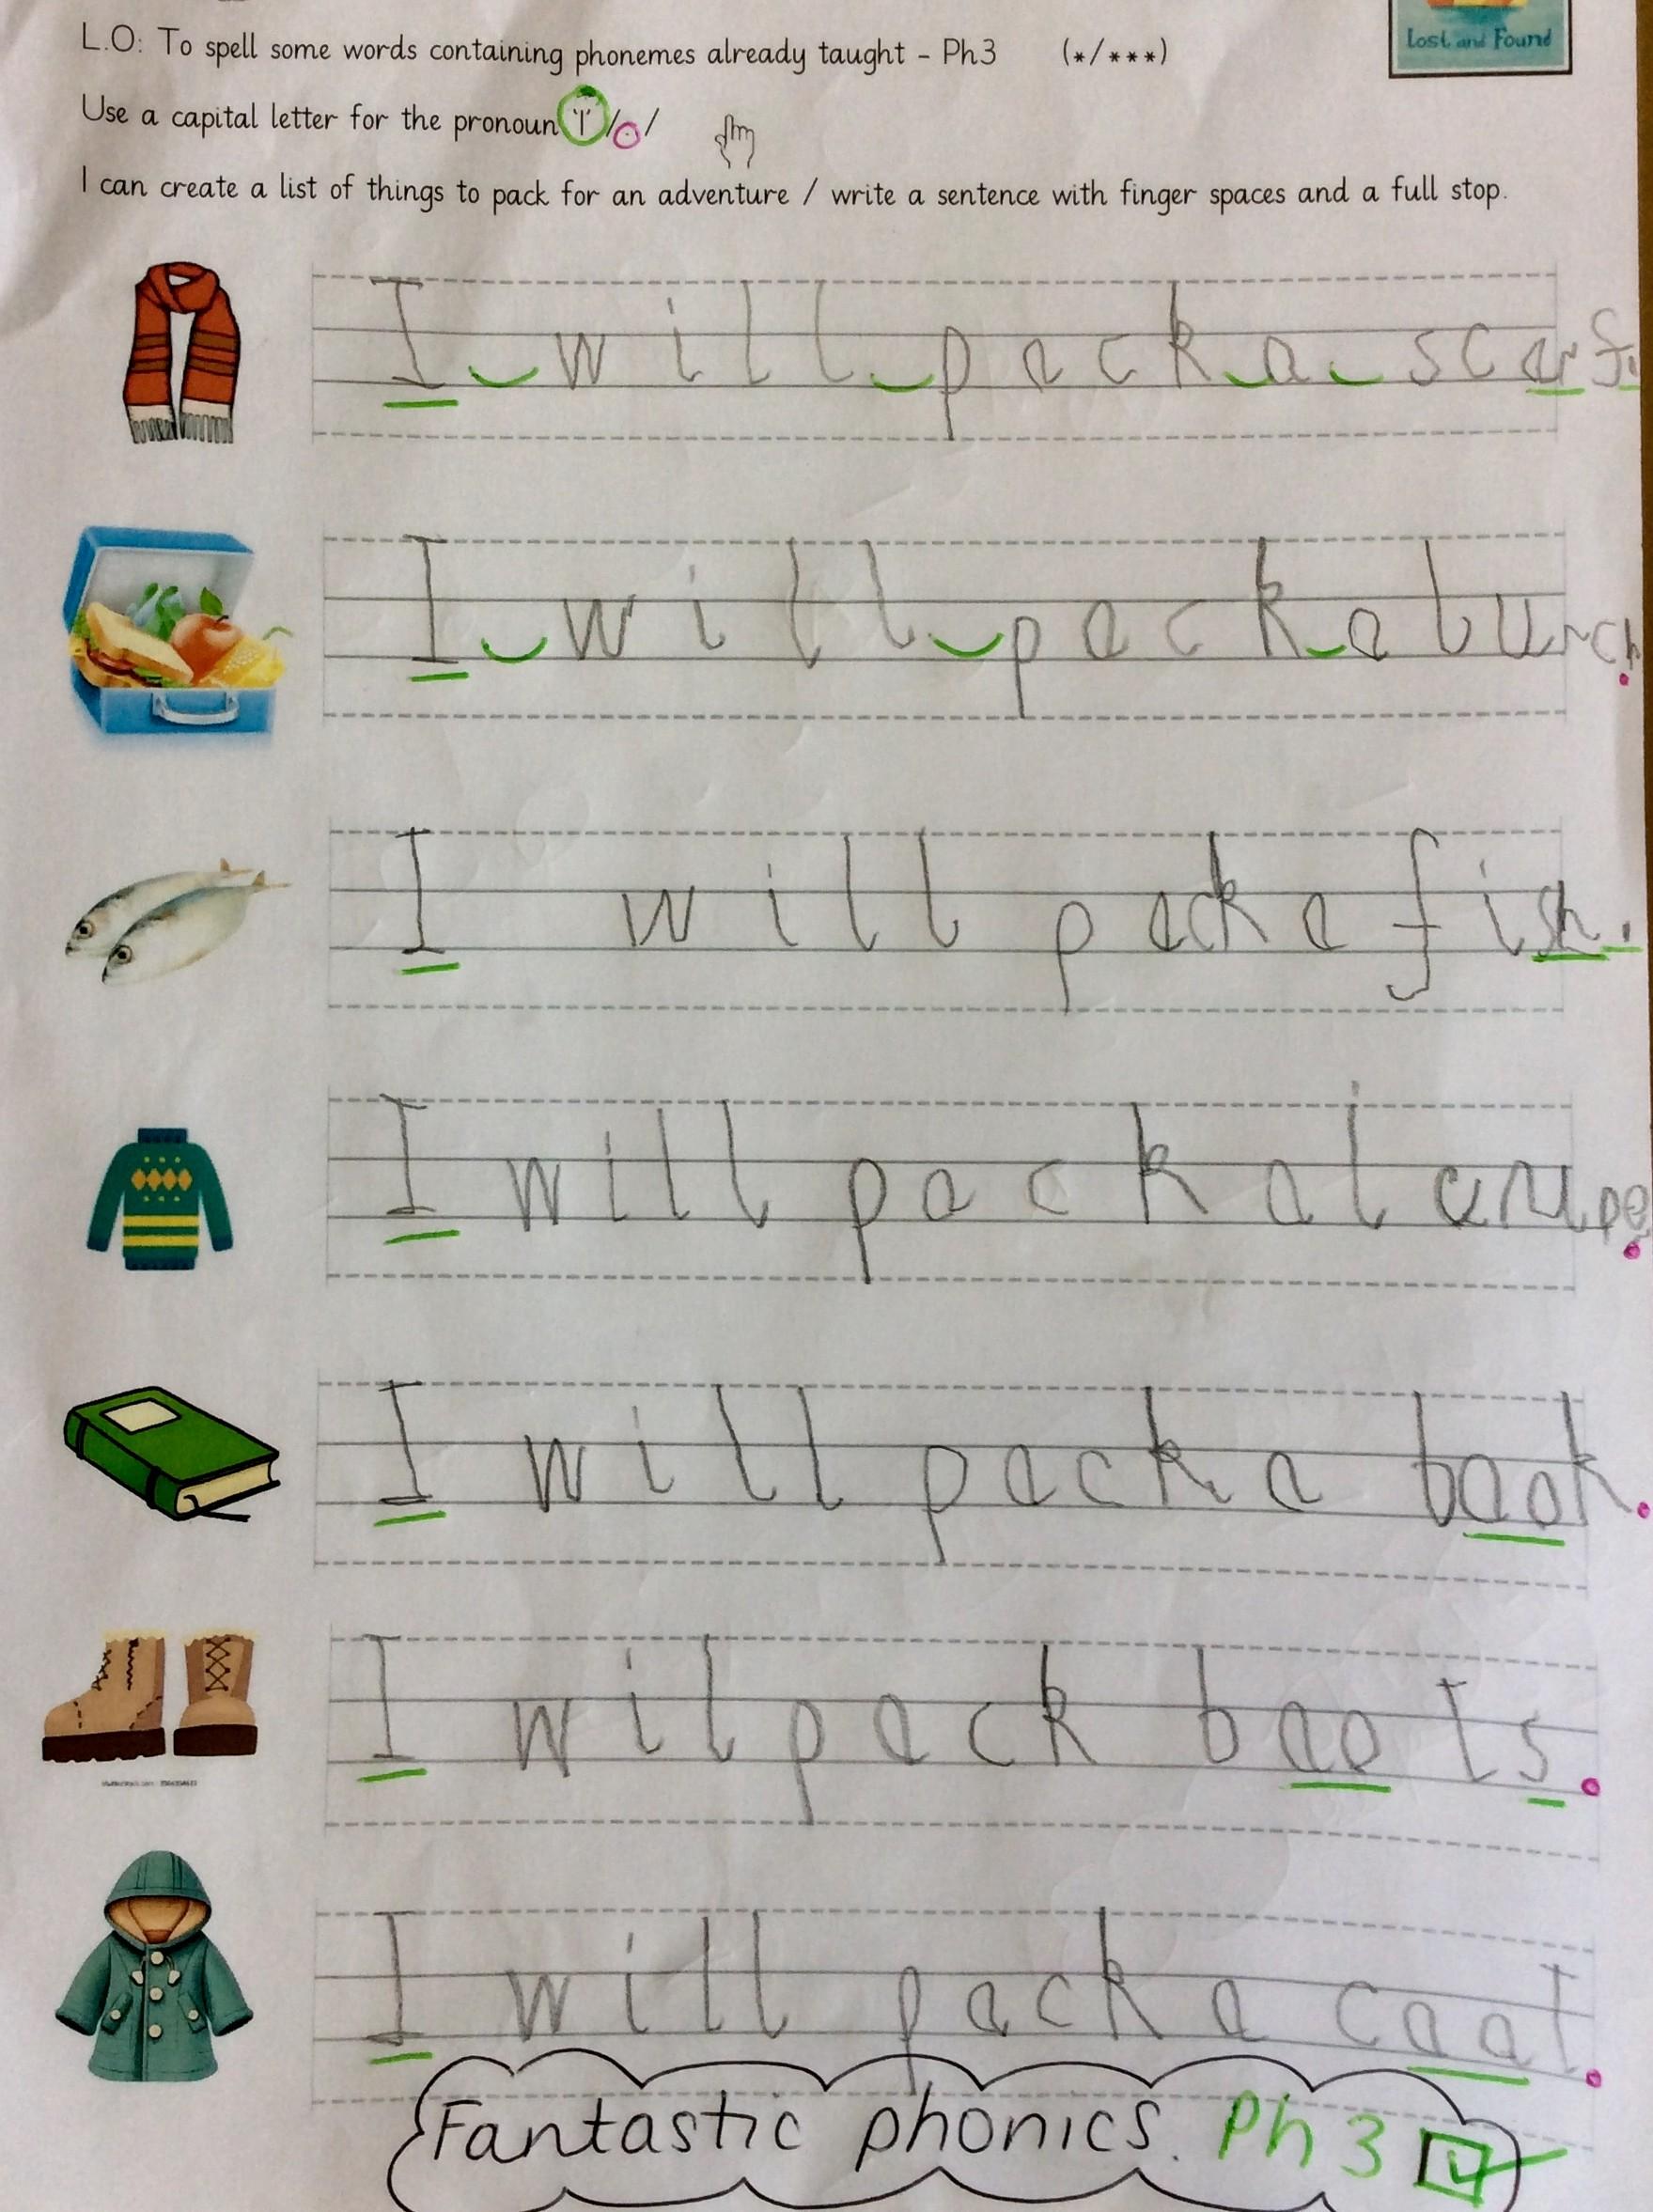 Lost and Found
L.O: To spell some words containing phonemes already taught - Ph3 (*/***)
Use a capital letter for the pronoun 'I' /./
I can create a list of things to pack for an adventure / write a sentence with finger spaces and a full stop.
I will pack a scarf.
I will pack a lunch
I will pack a fish.
I will pack a
I will pack a book.
I wil pack boots.
I will pack a coat.
Fantastic phonics. Ph 3